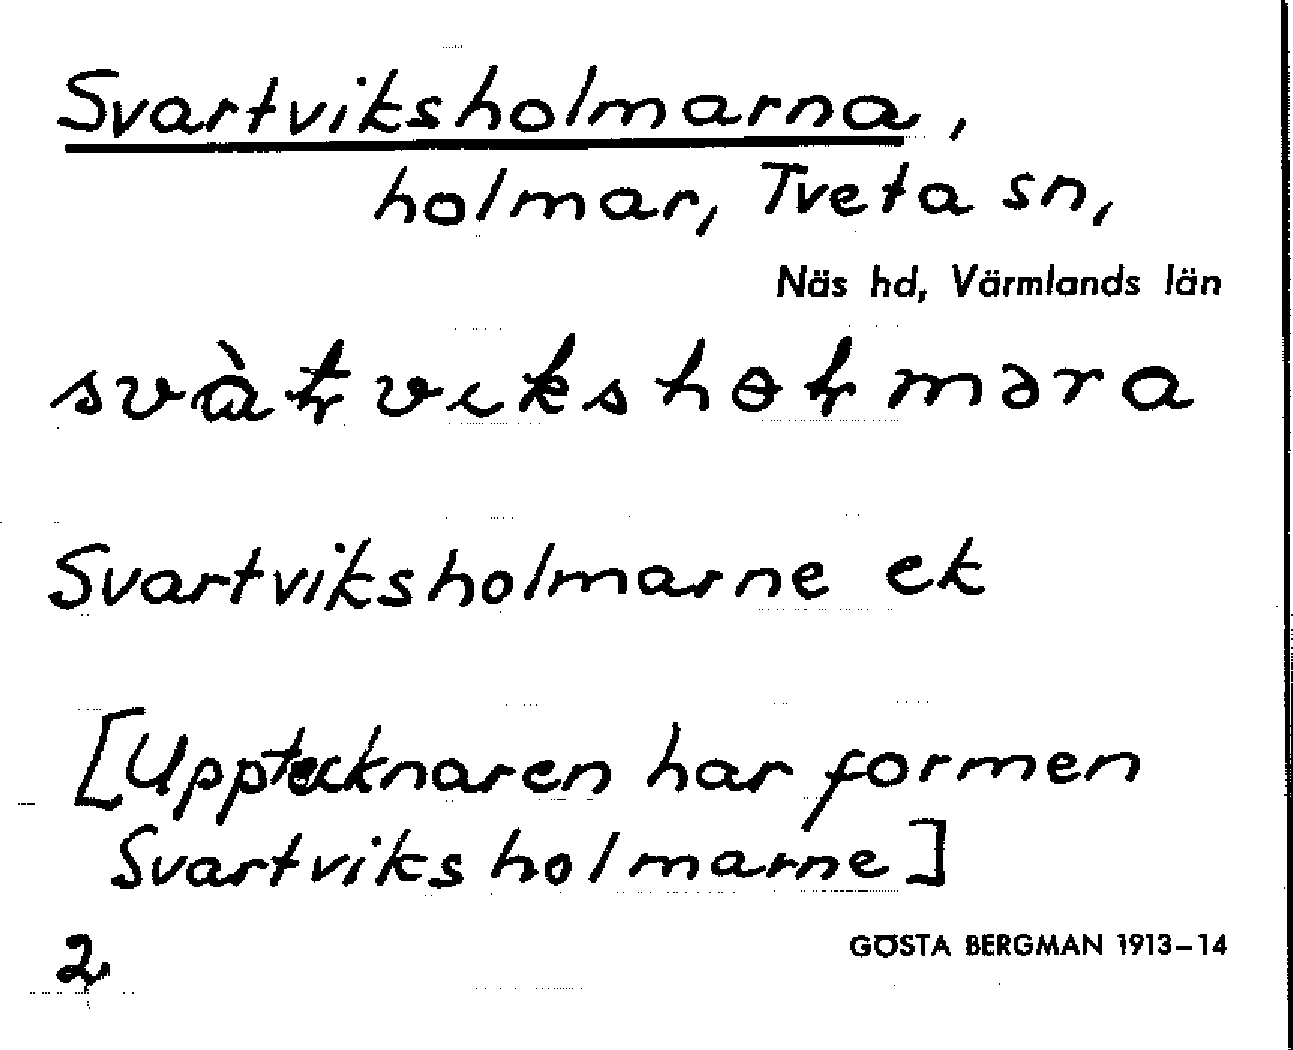 Svartviksholmarna,
holmar, Tveta sn,
Näs hd, Värmlands län
svàʈvikshɵɽməra
Svartviksholmarne ek
[Upptecknaren har formen
Svartviksholmarne]
2
GÖSTA BERGMAN 1913–14